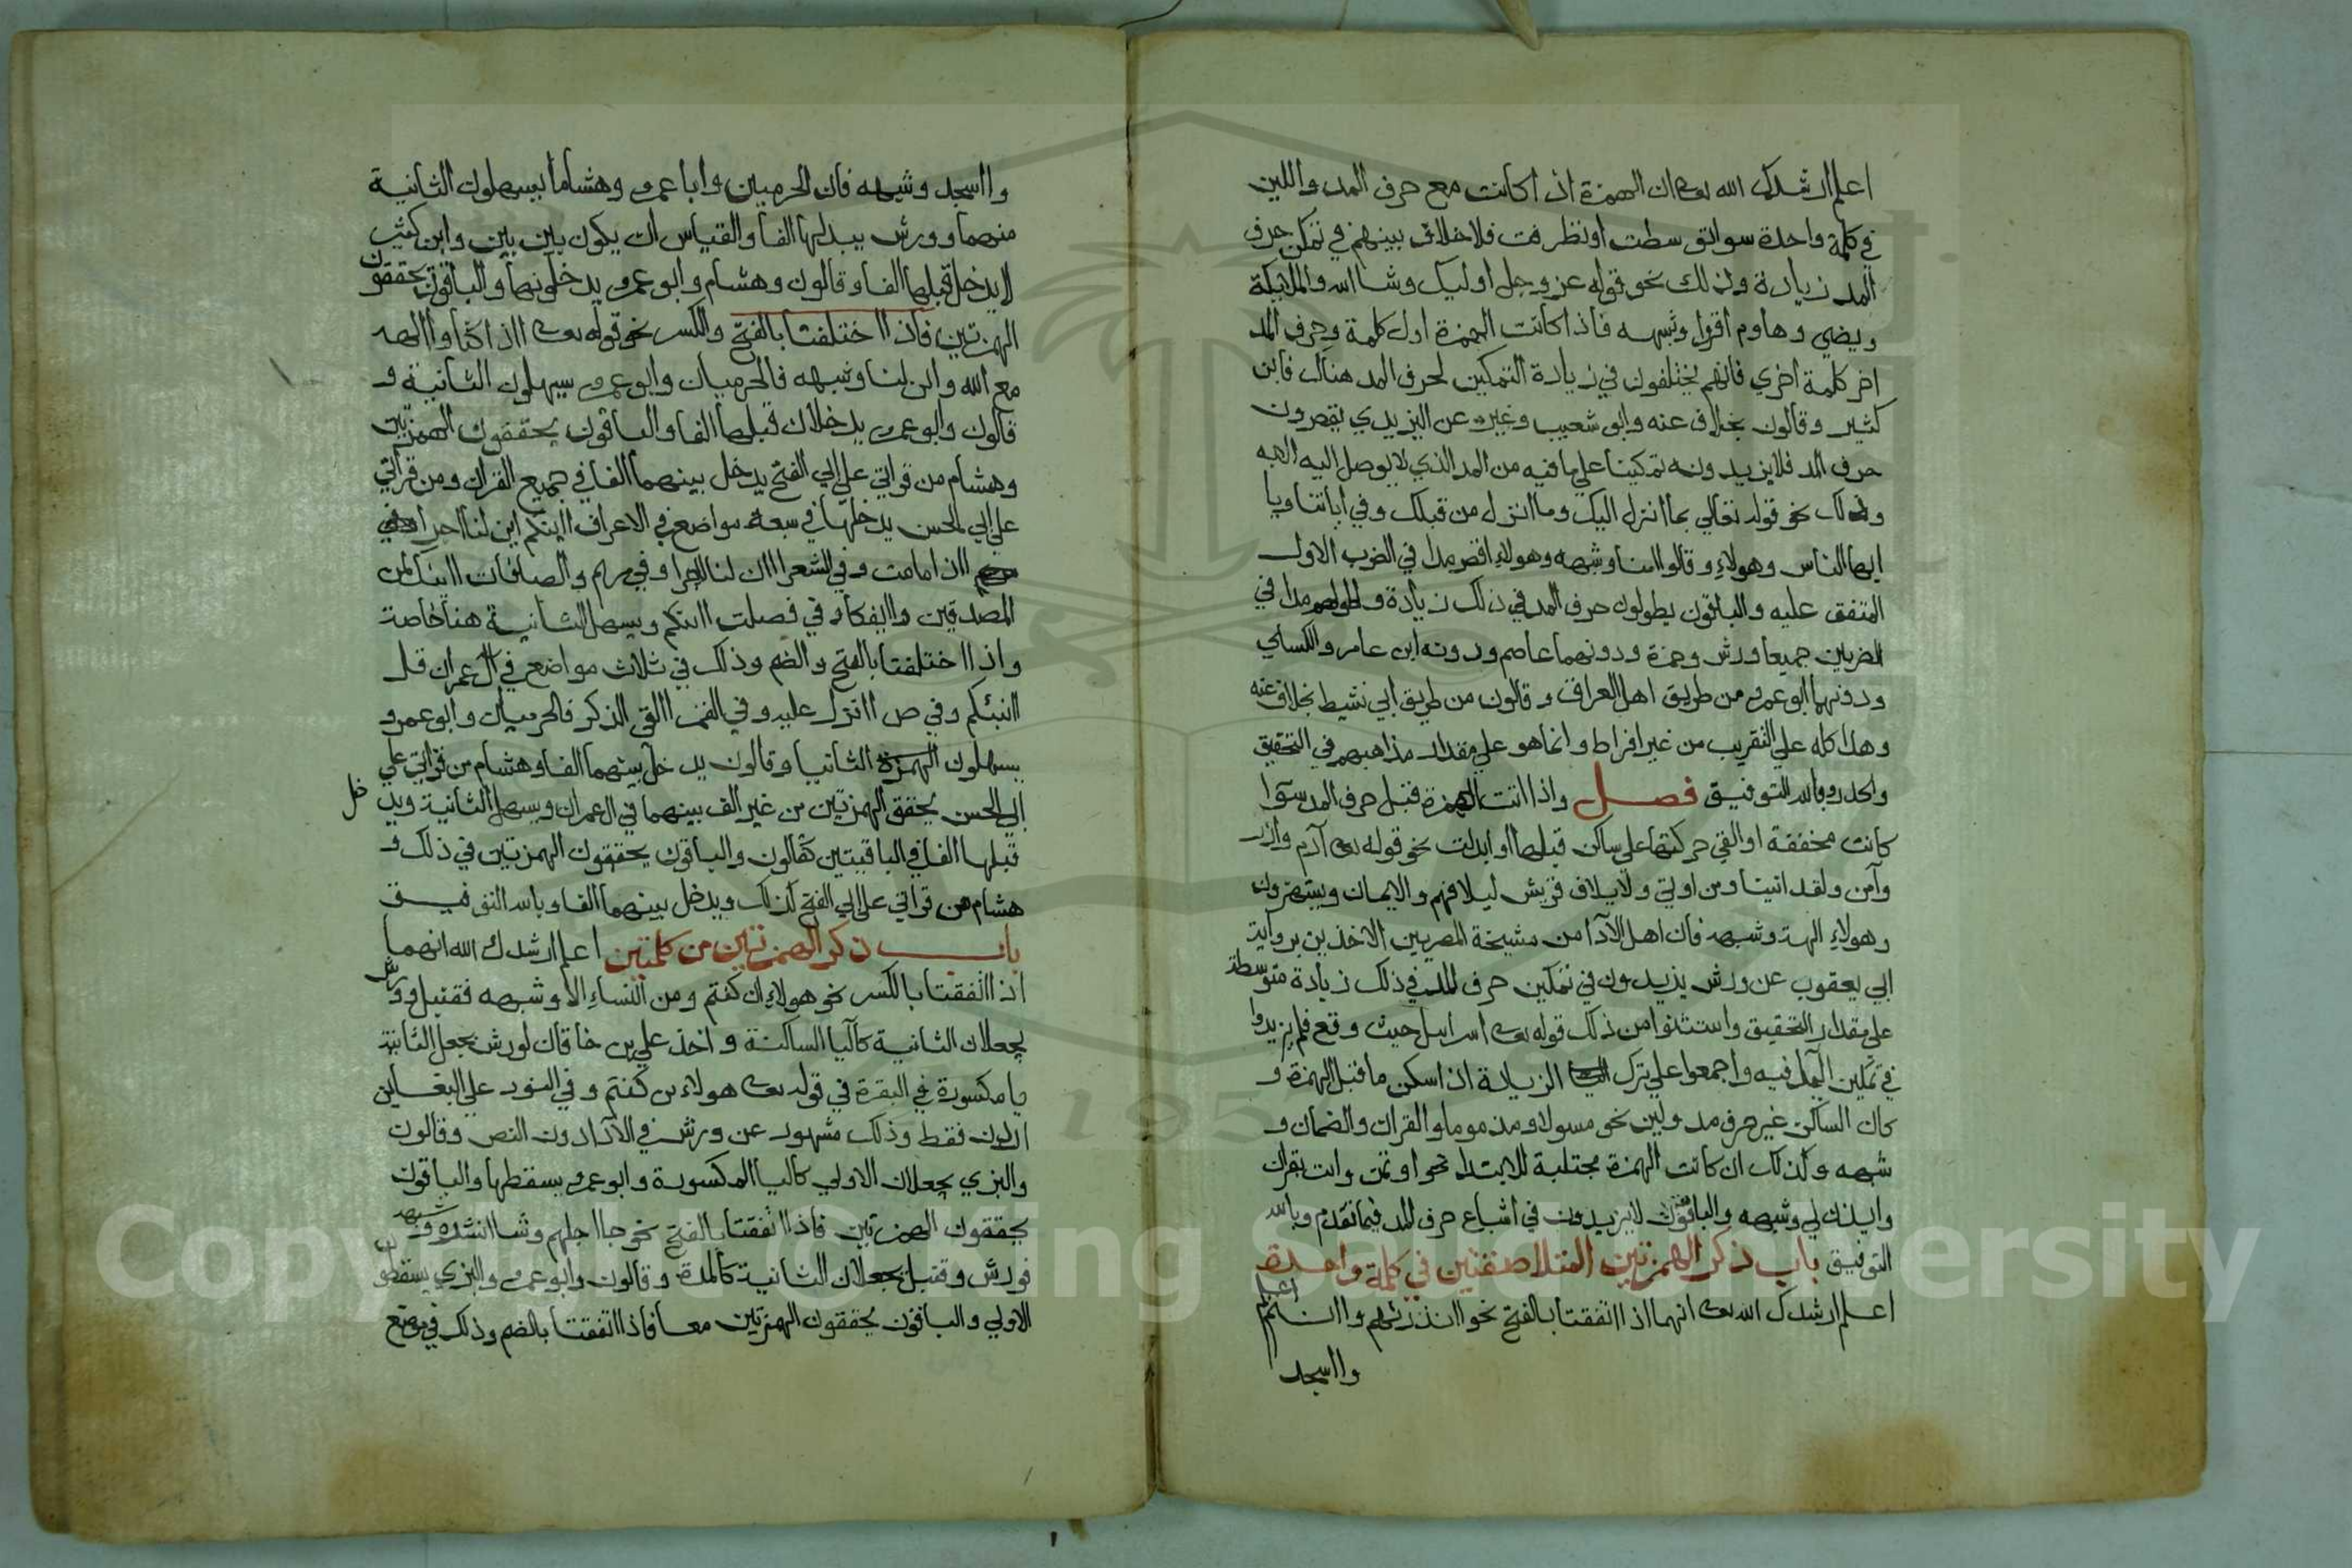 اعلم ارشدك الله تعالى ان الهمزة اذا كانت مع حرف المد واللين
في كلمة واحدة سوا توسطت او تطرفت فلا خلاف بينهم في تمكن حرف
المد زيادة وذلك نحو قوله عز وجل اوليك وشا الله والملايكة
ويضي وهاوم اقروا وشبهه فاذا كانت الهمزة اول كلمة وحرف المد
اخر كلمة اخري فانهم يختلفون في زيادة التمكين لحرف المد هناك فابن
كثير وقالون بخلاف عنه وابو شعيب وغيره عن اليزيدي يقصرون
حرف المد فلا يزيدونه تمكينا علي ما فيه من المد الذي لا يوصل اليه الا به
وذلك نحو قوله تعالي بما انزل اليك وما انزل من قبلك وفي اياتنا ويا
ايها الناس وهولاءِ وقالوا امنا وشبهه وهولاءِ اقصر مدا في الضرب الاول
المتفق عليه والباقون يطولون حرف المد في ذلك زيادة واطولهم مدا في
الضربين جميعا ورش وحمزة ودونهما عاصم ودونه ابن عامر والكساي
ودونهما ابو عمرو من طريق اهل العراق وقالون من طريق ابي نشيط بخلاف عنه
وهذا كله علي التقريب من غير افراط وانما هو علي مقدار مذاهبهم في التحقيق
والحدر وبالله التوفيق فصل واذا اتت الهمزة قبل حرف المد سوا
كانت محققة او القي حركتها علي ساكن قبلها او ابدلت نحو قوله تعالى آدم وازر
وآمن ولقد اتينا ومن اوتي ولايلاف قريش ايلافهم والايمان ويستهزون
وهولاءِ الهة وشبهه فان اهل الآدا من مشيخة المصريين الاخذين برواية
ابي يعقوب عن ورش يزيدون في تمكين حرف المد في ذلك زيادة متوسطة
علي مقدار التحقيق واستثنوا من ذلك قوله تعالى اسرايل حيث وقع فلم يزيدوا
في تمكين الياء فيه واجمعوا علي ترك الزيادة اذا سكن ما قبل الهمزة و
كان الساكن غير حرف مد ولين نحو مسولا ومذموما والقران والضمان و
شبهه وكذلك ان كانت الهمزة مجتلبة للابتدا نحو اوتمن وايت بقران
وايذن لي وشبهه والباقون لا يزيدون في اشباع حرف المد فيما تقدم وبالله
التوفيق باب ذكر الهمزتين المتلاصقتين في كلمة واحدة
اعلم ارشدك الله تعالى انهما اذا اتفقتا بالفتح نحو اانذرتهم واانتم اعلم
وااسجد
وااسجد وشبهه فان الحرميين وابا عمرو وهشاما يسهلون الثانية
منهما وورش يبدلها الفا والقياس ان يكون بين بين وابن كثير
لا يدخل قبلها الفا وقالون وهشام وابو عمرو يدخلونها والباقون يحققون
الهمزتين فاذا اختلفتا بالفتح والكسر نحو قوله تعالى ااذا كنا وااله
مع الله واان لنا وشبهه فالحرميان وابو عمرو يسهلون الثانية و
قالون وابو عمرو يدخلان قبلها الفا والباقون يحققون الهمزتين
وهشام من قراتي علي ابي الفتح يدخل بينهما الفا في جميع القران ومن قراتي
علي ابي الحسن يدخلها في سبعة مواضع في الاعراف اانكم اين لنا اجرا وفي
مريم ااذا ما مت وفي الشعرا اان لنا لاجرا وفي مريم والصافات اانك لمن
المصدقين واايفكا وفي فصلت اانكم ويسهل الثانية هنا خاصة
واذا اختلفتا بالفتح والضم وذلك في ثلاث مواضع في ال عمران قل
اانبئكم وفي ص اانزل عليه وفي القمر االقي الذكر فالحرميان وابو عمرو
يسهلون الهمزة الثانيا وقالون يدخل بينهما الفا وهشام من قراتي علي
ابي الحسن يحقق الهمزتين من غير الف بينهما في ال عمران ويسهل الثانية ويدخل
قبلها الفا في الباقيتين كقالون والباقون يحققون الهمزتين في ذلك و
هشام من قراتي علي ابي الفتح كذلك ويدخل بينهما الفا وبالله التوفيق
باب ذكر الهمزتين من كلمتين اعلم ارشدك الله انهما
اذا اتفقتا بالكسر نحو هولاءِ ان كنتم ومن النساءِ الا وشبهه فقنبل وورش
يجعلان الثانية كاليا الساكنة واخذ علي بن خاقان لورش بجعل الثانية
يا مكسورة في البقرة في قوله تعالى هولاء ان كنتم وفي النور علي البغا ان
اردن فقط وذلك مشهور عن ورش في الآدا دون النص وقالون
والبزي يجعلان الاولي كاليا المكسورة وابو عمرو يسقطها والباقون
يحققون الهمزتين فاذا اتفقتا بالفتح نحو جا اجلهم وشا انشره وشبهه
فورش وقنبل يجعلان الثانية كالمدة وقالون وابو عمرو والبزي يسقطون
الاولي والباقون يحققون الهمزتين معا فاذا اتفقتا بالضم وذلك في موضع
Copyright © King Saud University
1957